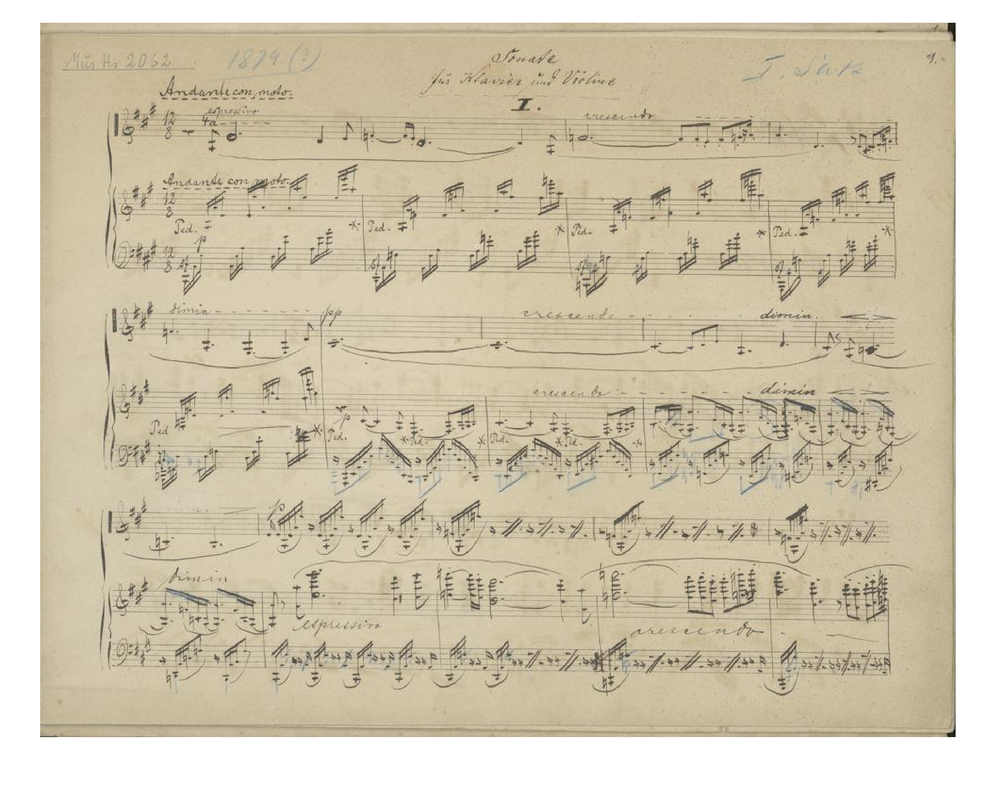 Mus Hs 2062 1874 (?) Sonate I. Satz 1.
für Klavier und Violine
Andante con moto. I.
espressivo crescendo
12
8
Andante con moto.
12
8
Ped. * Ped. * Ped. * Ped. *
p
12
8
dimin pp crescendo dimin.
crescendo dimin
Ped * Ped. * Ped. * Ped. * Ped. *
p
dimin
espressivo crescendo